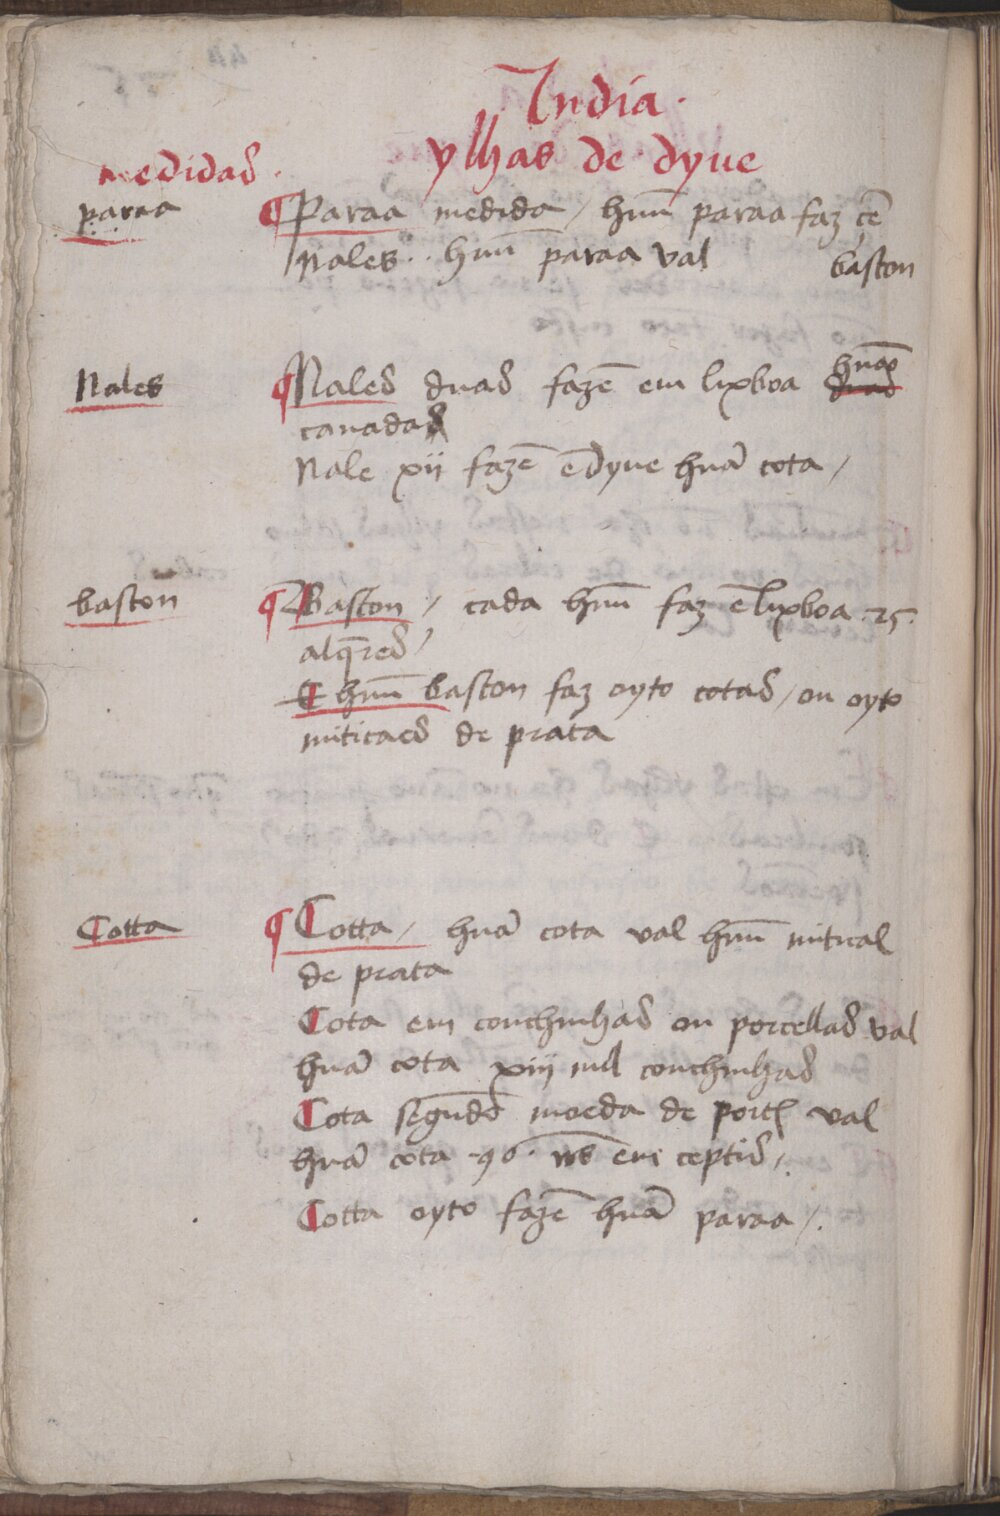 India.
ylhas de dyue
medidas.
paraa
¶Paraa medida / huũ paraa faz cẽ
Nales.. huũ paraa val baston
Nales
¶Nales duas fazẽ em lixboa huas duas
canadas
Nale xii fazẽ ẽ dyue huã cota /
baston
¶Baston / cada huũ faz ẽ lixboa .25.
alqr̃es /
¶ huũ baston faz oyto cotas / ou oyto
miticaes de prata
Cotta
¶Cotta / huã cota val huũ mitical
de prata
Cota em conchinhas ou porcellas val
huã cota xiii mil conchinhas
Cota segundo moeda de port val
huã cota .96. rs̃ em ceptis /.
Cotta oyto fazẽ huã paraa /.